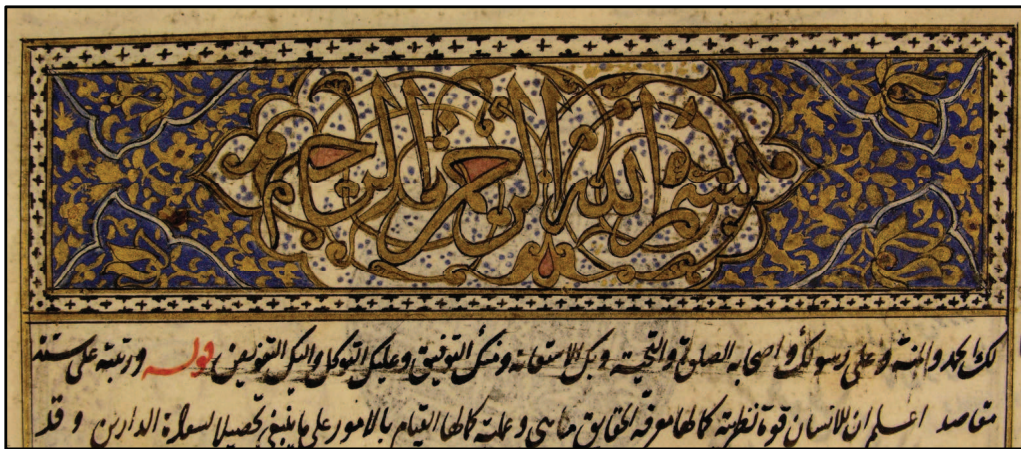 بسم الله الرحمن الرحيم
لك الحمد والمنة وعلى رسولك وأصحابه الصلوة والتحية وبك الاستعانة ومنك التوفيق وعليك التوكل واليك التفويض قوله ورتبته على ستة
مقاصد اعلم ان للانسان قوة نظرية كمالها معرفة الحقايق كما هي وعملية كمالها القيام بالامور على ما ينبغي تحصيلا لسعادة الدارين وقد